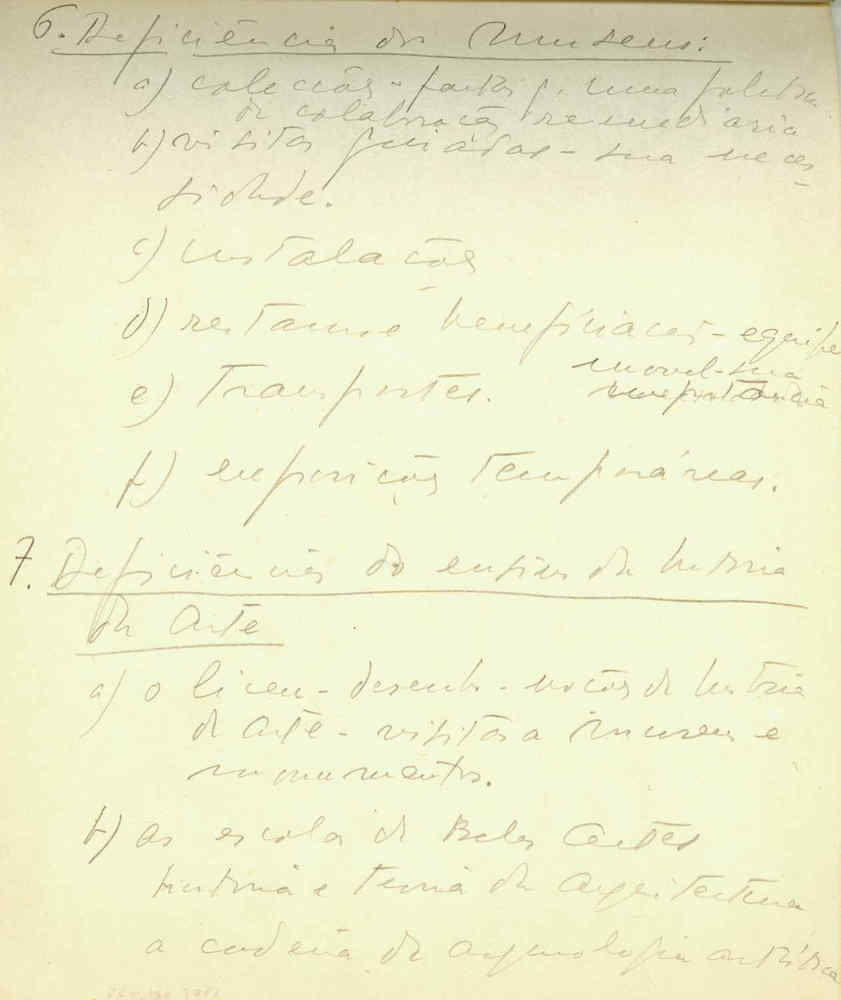 6. Deficiência dos Museus:
a) colecções - fartos p. uma politica
de colaboração remediaria
b) visitas guiadas - sua neces-
sidade.
c) instalações
d) restauro e beneficiações - equipe
movel - sua
importancia
e) Transportes.
f) exposições temporáreas.
7. Deficiências do ensino da historia
da Arte
a) o liceu - desenho - noções de historia
de arte - visitas a museus e
monumentos.
b) as escolas de Belas Artes
historia e teoria da Arquitectura
a cadeira de arqueologia artistica